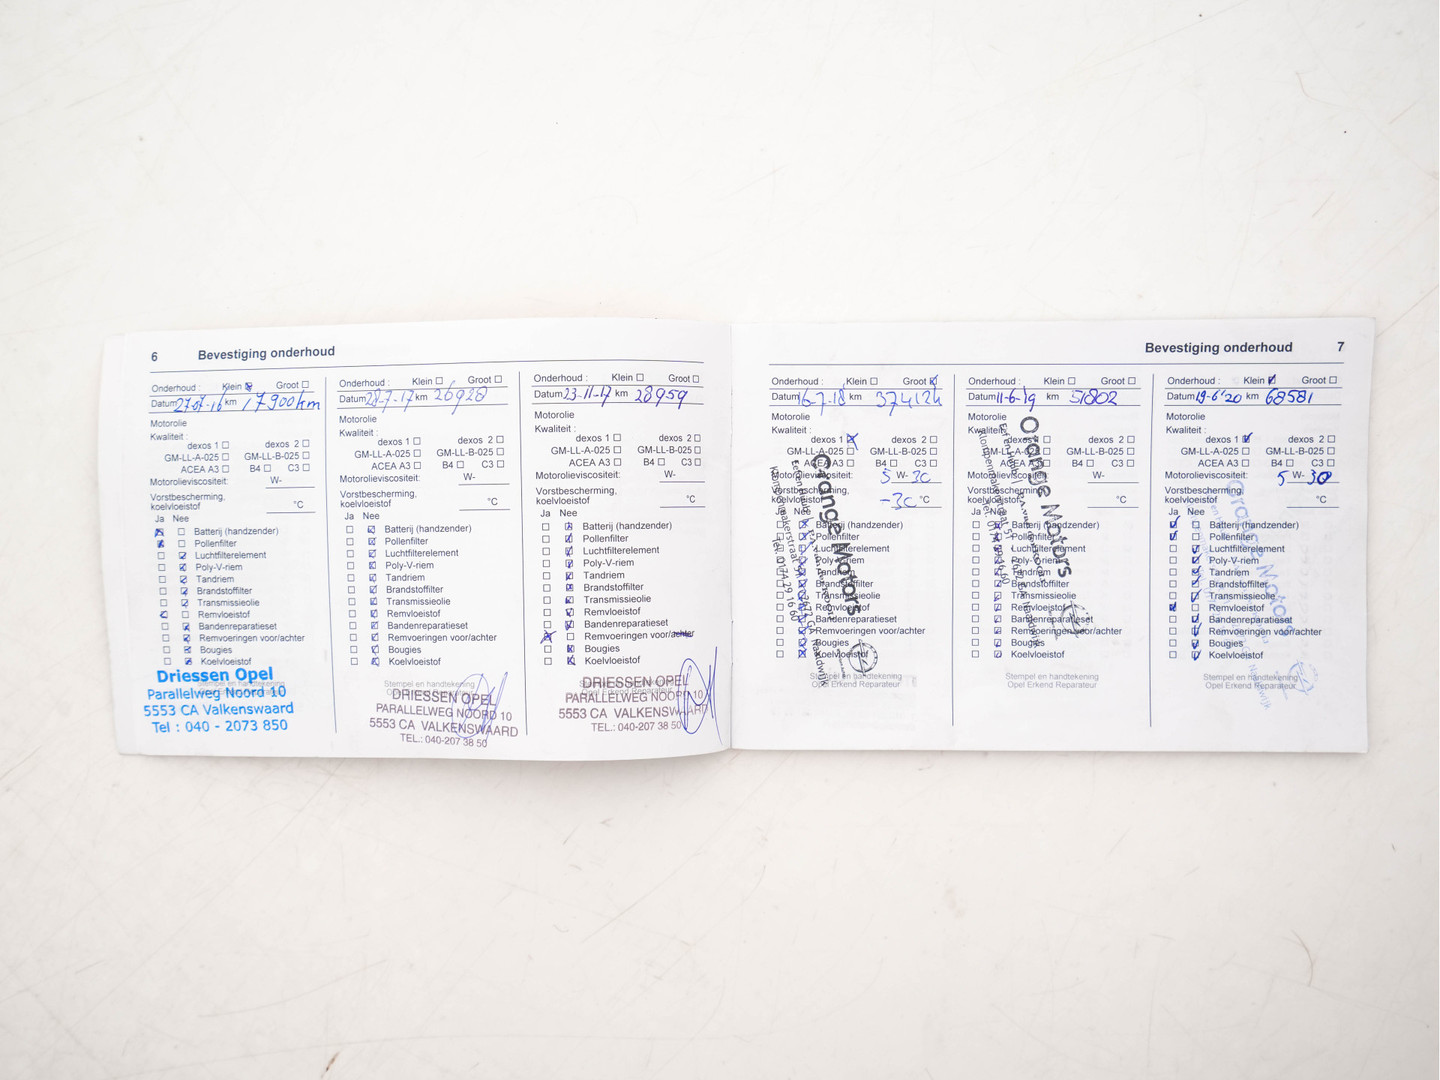 6 Bevestiging onderhoud
Onderhoud : Klein Groot
Datum 27-07-16 km 17900km
Motorolie
Kwaliteit :
dexos 1 dexos 2
GM-LL-A-025 GM-LL-B-025
ACEA A3 B4 C3
Motorolieviscositeit: W-
Vorstbescherming,
koelvloeistof °C
Ja Nee
Batterij (handzender)
Pollenfilter
Luchtfilterelement
Poly-V-riem
Tandriem
Brandstoffilter
Transmissieolie
Remvloeistof
Bandenreparatieset
Remvoeringen voor/achter
Bougies
Koelvloeistof
Driessen Opel
Parallelweg Noord 10
5553 CA Valkenswaard
Tel : 040 - 2073 850
Onderhoud : Klein Groot
Datum 28-7-17 km 26928
Motorolie
Kwaliteit :
dexos 1 dexos 2
GM-LL-A-025 GM-LL-B-025
ACEA A3 B4 C3
Motorolieviscositeit: W-
Vorstbescherming,
koelvloeistof °C
Ja Nee
Batterij (handzender)
Pollenfilter
Luchtfilterelement
Poly-V-riem
Tandriem
Brandstoffilter
Transmissieolie
Remvloeistof
Bandenreparatieset
Remvoeringen voor/achter
Bougies
Koelvloeistof
Stempel en handtekening
Opel Erkend Reparateur
DRIESSEN OPEL
PARALLELWEG NOORD 10
5553 CA VALKENSWAARD
TEL.: 040-207 38 50
Onderhoud : Klein Groot
Datum 23-11-17 km 28959
Motorolie
Kwaliteit :
dexos 1 dexos 2
GM-LL-A-025 GM-LL-B-025
ACEA A3 B4 C3
Motorolieviscositeit: W-
Vorstbescherming,
koelvloeistof °C
Ja Nee
Batterij (handzender)
Pollenfilter
Luchtfilterelement
Poly-V-riem
Tandriem
Brandstoffilter
Transmissieolie
Remvloeistof
Bandenreparatieset
Remvoeringen voor/achter
Bougies
Koelvloeistof
Stempel en handtekening
Opel Erkend Reparateur
DRIESSEN OPEL
PARALLELWEG NOORD 10
5553 CA VALKENSWAARD
TEL.: 040-207 38 50
Bevestiging onderhoud 7
Onderhoud : Klein Groot
Datum 16-7-18 km
Motorolie
Kwaliteit :
dexos 1 dexos 2
GM-LL-A-025 GM-LL-B-025
ACEA A3 B4 C3
Motorolieviscositeit: 5 W- 30
Vorstbescherming,
koelvloeistof -30 °C
Ja Nee
Batterij (handzender)
Pollenfilter
Luchtfilterelement
Poly-V-riem
Tandriem
Brandstoffilter
Transmissieolie
Remvloeistof
Bandenreparatieset
Remvoeringen voor/achter
Bougies
Koelvloeistof
Stempel en handtekening
Opel Erkend Reparateur
Orange Motors
Tel. 0174 29 16 60
Onderhoud : Klein Groot
Datum 11-6-19 km 51802
Motorolie
Kwaliteit :
dexos 1 dexos 2
GM-LL-A-025 GM-LL-B-025
ACEA A3 B4 C3
Motorolieviscositeit: W-
Vorstbescherming,
koelvloeistof °C
Ja Nee
Batterij (handzender)
Pollenfilter
Luchtfilterelement
Poly-V-riem
Tandriem
Brandstoffilter
Transmissieolie
Remvloeistof
Bandenreparatieset
Remvoeringen voor/achter
Bougies
Koelvloeistof
Stempel en handtekening
Opel Erkend Reparateur
Orange Motors
Onderhoud : Klein Groot
Datum 19-6-'20 km 68581
Motorolie
Kwaliteit :
dexos 1 dexos 2
GM-LL-A-025 GM-LL-B-025
ACEA A3 B4 C3
Motorolieviscositeit: 5 W- 30
Vorstbescherming,
koelvloeistof °C
Ja Nee
Batterij (handzender)
Pollenfilter
Luchtfilterelement
Poly-V-riem
Tandriem
Brandstoffilter
Transmissieolie
Remvloeistof
Bandenreparatieset
Remvoeringen voor/achter
Bougies
Koelvloeistof
Stempel en handtekening
Opel Erkend Reparateur
Orange Motors